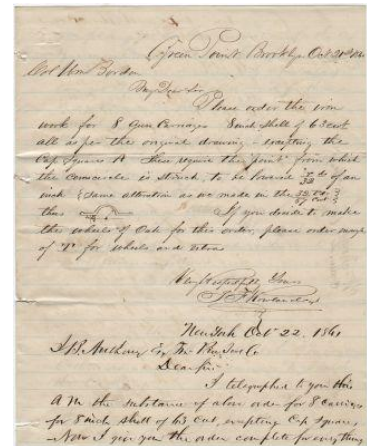 Green Point Brooklyn Oct 21st
Col Wm Borden
My Dear Sir
Please order the iron
work for 8 Gun Carriages 8 inch shell of 63 cwt
all as per the original drawing - excepting the
Cap Squares A. These require the "point" from which
the semicircle is struck, to be lowered of an
inch (same alteration as we made in the
thus If you decide to make
the wheels of Oak for this order, please order
of for wheels and
Very Respectfully Yours
T. F. Rowland
New York Oct 22. 1861
Esq
Dear Sir
I telegraphed to you this
A M the substance of above order for 8 carriages
for 8 inch shell of 63 cwt, excepting Cap Squares,
- Now I give you the order complete for everything